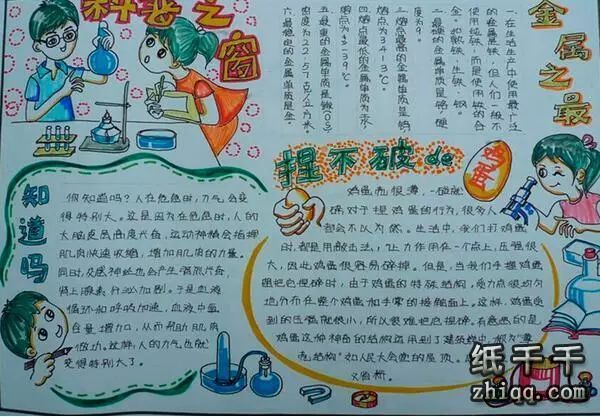 科技之窗
金属之最
一.在生活生产中使用最广泛
的金属是铁,但人们一般不
使用纯铁,而是使用铁的合
金。如软铁、生铁、钢
二.最硬的金属单质是铬,硬
度为9。
三.熔点最高的金属单质是钨
熔点为3413℃
四.熔点最低的金属单质为汞
熔点为-39℃。
五.最重的金属单质是锇(Os)
密度为22.57克/立方米
六.最稳定的金属单质是金。
知道吗
你知道吗?人在危急时,力气会变
得特别大。这是因为在危急时,人的
大脑皮层高度兴奋,运动神经会指挥
肌肉快速收缩,增加肌肉的力量。
同时,交感神经也会产生强烈兴奋,
肾上腺素分泌加剧。于是血液
循环和呼吸加速,血液中氧
含量增加,从而帮助肌肉
做功。这样,人的力气也就
变得特别大了。
捏不破de
鸡蛋
鸡蛋壳很薄,一碰就
碎,对于捏鸡蛋的行为,很多人
都会不以为然。生活中,我们打鸡蛋
时,都是用敲击法,让力作用在一点上,压强很
大,因此鸡蛋很容易碎掉。但是,当我们手握鸡蛋
想把它捏碎时,由于鸡蛋的特殊结构,受力点很均匀
地分布在整个鸡蛋和手掌的接触面上。这样,鸡蛋受到
的压强就很小,所以很难把它捏碎。有意思的是,
鸡蛋这种神奇的结构运用到了建筑学中,称为“薄
壳结构”。如人民大会堂的屋顶、
纸千千
zhiqq.com